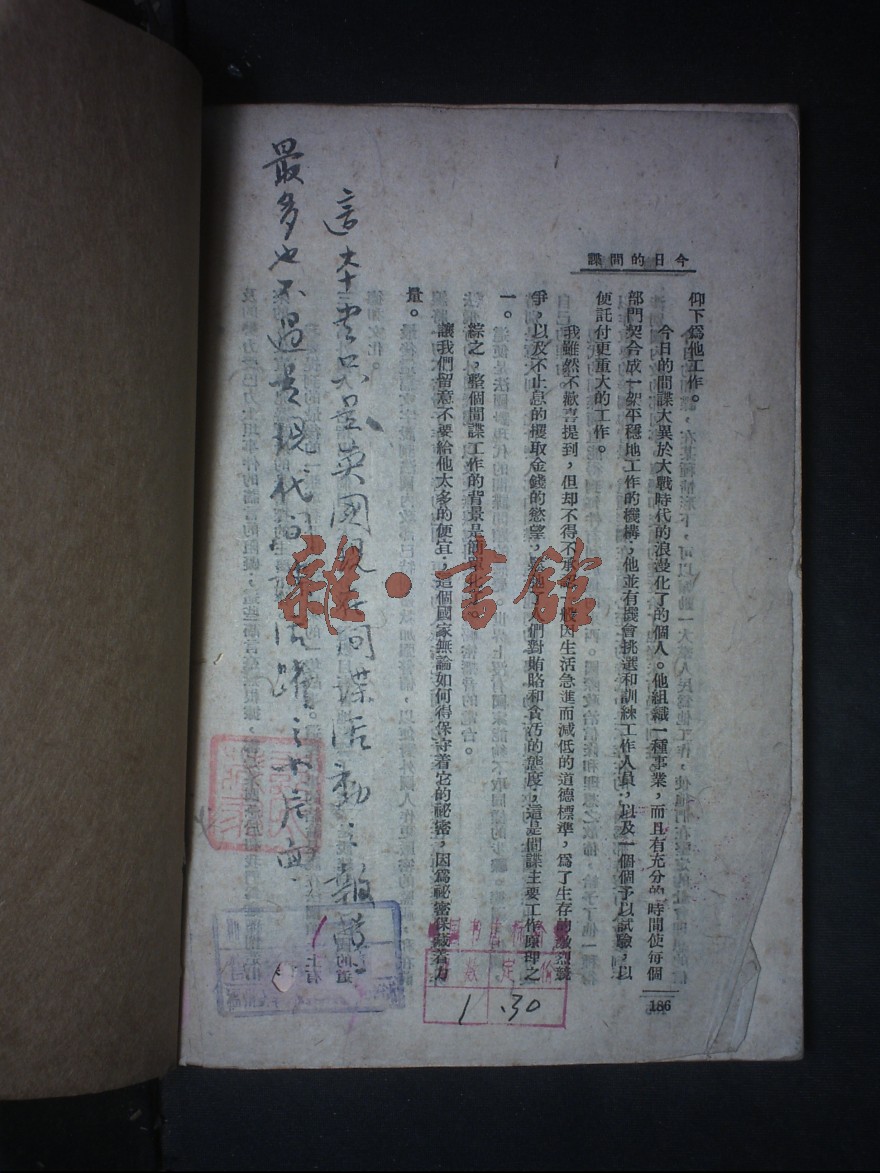 今日的間諜
仰下爲他工作。
今日的間諜大異於大戰時代的浪漫化了的個人。他組織一種事業，而且有充分的時間使每個
部門契合成一架平穩地工作的機構，他並有機會挑選和訓練工作人員，以及一個個予以試驗，以
便託付更重大的工作。
我雖然不歡喜提到，但却不得不承認一般因生活急進而減低的道德標準，爲了生存的激烈競
爭，以及不止息的攫取金錢的慾望，鬆弛了人們對賄賂和貪汚的態度；這是間諜主要工作原理之
一。
綜之，整個間諜工作的背景是簡單化了。
讓我們留意不要給他太多的便宜；這個國家無論如何得保守着它的祕密，因爲祕密保藏着力
量。
186
這本書只是英國現在間諜活動之報導
最多也不過是現代間諜活躍之一局面
雜·書館
定價
1 .30